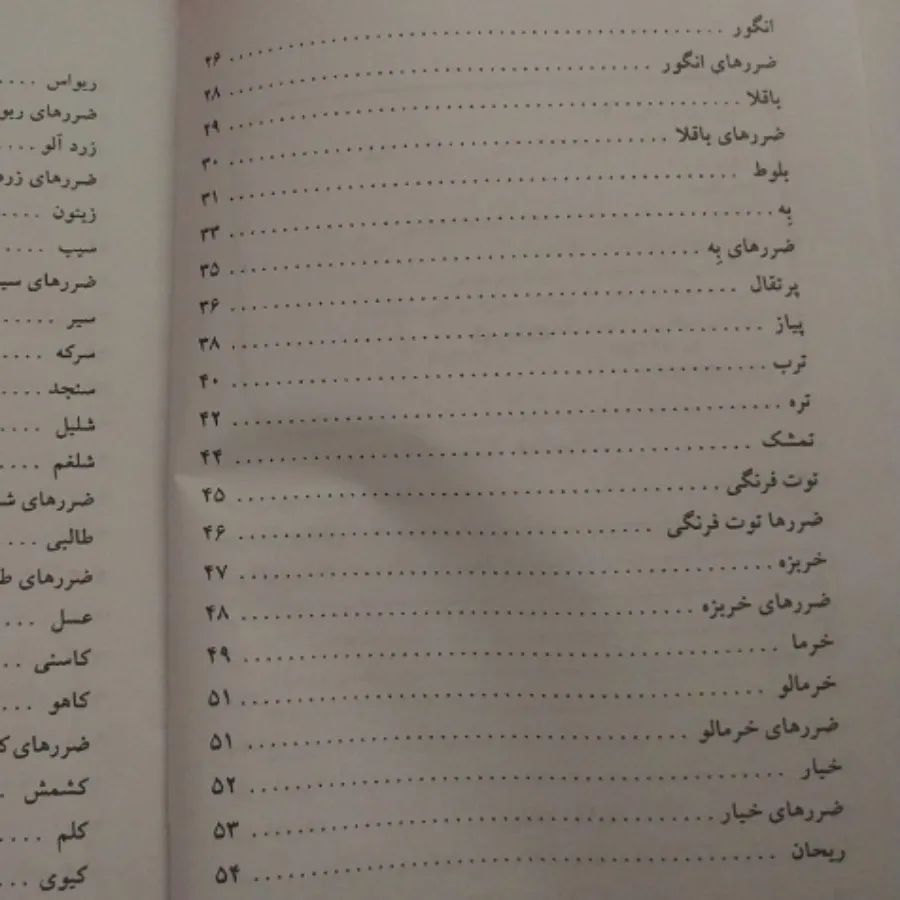 انگور ........ ۲۶
ضررهای انگور ........ ۲۸
باقلا ........ ۲۹
ضررهای باقلا ........ ۳۰
بلوط ........ ۳۱
بِه ........ ۳۳
ضررهای بِه ........ ۳۵
پرتقال ........ ۳۶
پیاز ........ ۳۸
ترب ........ ۴۰
تره ........ ۴۲
تمشک ........ ۴۴
توت فرنگی ........ ۴۵
ضررها توت فرنگی ........ ۴۶
خربزه ........ ۴۷
ضررهای خربزه ........ ۴۸
خرما ........ ۴۹
خرمالو ........ ۵۱
ضررهای خرمالو ........ ۵۱
خیار ........ ۵۲
ضررهای خیار ........ ۵۳
ریحان ........ ۵۴
ریواس ....
ضررهای ریو
زرد آلو ....
ضررهای زرد
زیتون ....
سیب ....
ضررهای سی
سیر ....
سرکه ....
سنجد ....
شلیل ....
شلغم ....
ضررهای ش
طالبی ...
ضررهای ط
عسل ....
کاسنی ...
کاهو ...
ضررهای ک
کشمش .
کلم ....
کیوی ...